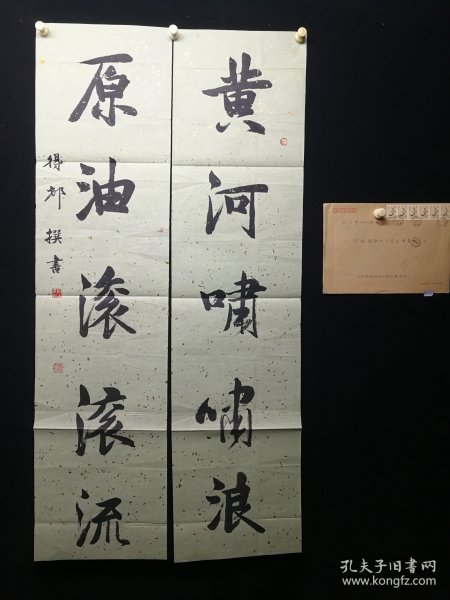 黄河啸啸浪
原油滚滚流
撰书
孔夫子旧书网
www.kongfz.com